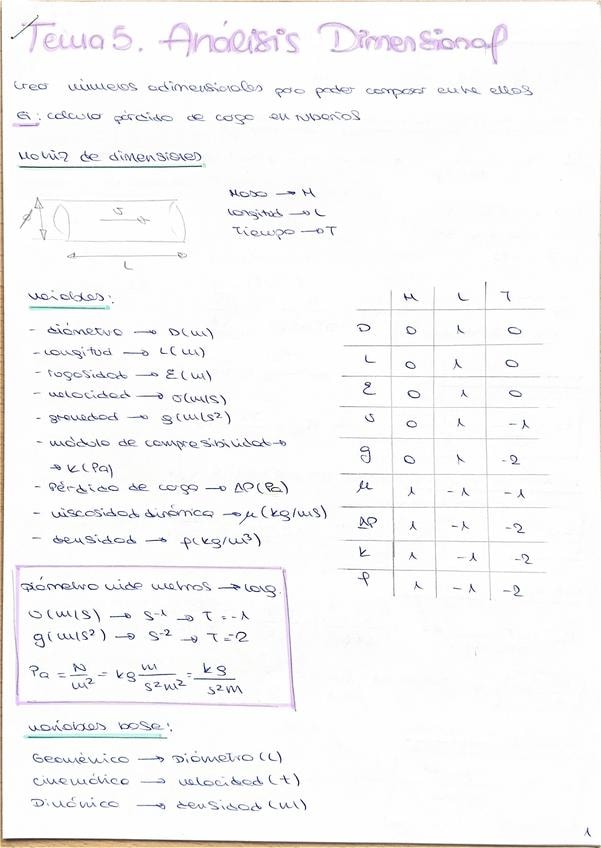 Tema 5. Análisis Dimensional
Creo números adimensionales para poder comparar entre ellos
Ej: cálculo pérdida de carga en tuberías
Matriz de dimensiones
Masa → M
Longitud → L
Tiempo → T
ϕ
v
L
variables:
- diámetro → D(m)
- longitud → L(m)
- rugosidad → Ɛ(m)
- velocidad → v(m/s)
- gravedad → g(m/s²)
- módulo de compresibilidad →
→ K(Pa)
- Pérdida de carga → ΔP(Pa)
- viscosidad dinámica → μ(kg/ms)
- densidad → ρ(kg/m³)
M L T
D 0 1 0
L 0 1 0
Ɛ 0 1 0
v 0 1 -1
g 0 1 -2
μ 1 -1 -1
ΔP 1 -1 -2
K 1 -1 -2
ρ 1 -1 -2
Diámetro mide metros → long.
v(m/s) → s⁻¹ → T = -1
g(m/s²) → s⁻² → T = -2
Pa = N/m² = kg m/s²m² = kg/s²m
variables base:
Geométrico → Diámetro (L)
cinemático → velocidad (t)
Dinámico → densidad (m)
1